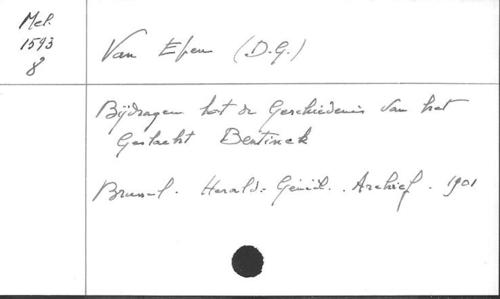 Mel.
1593
8
Van Epen (D.G.)
Bijdragen tot de Geschiedenis van het
Geslacht Bentinck
Brussel. Herald. Geneal. Archief. 1901